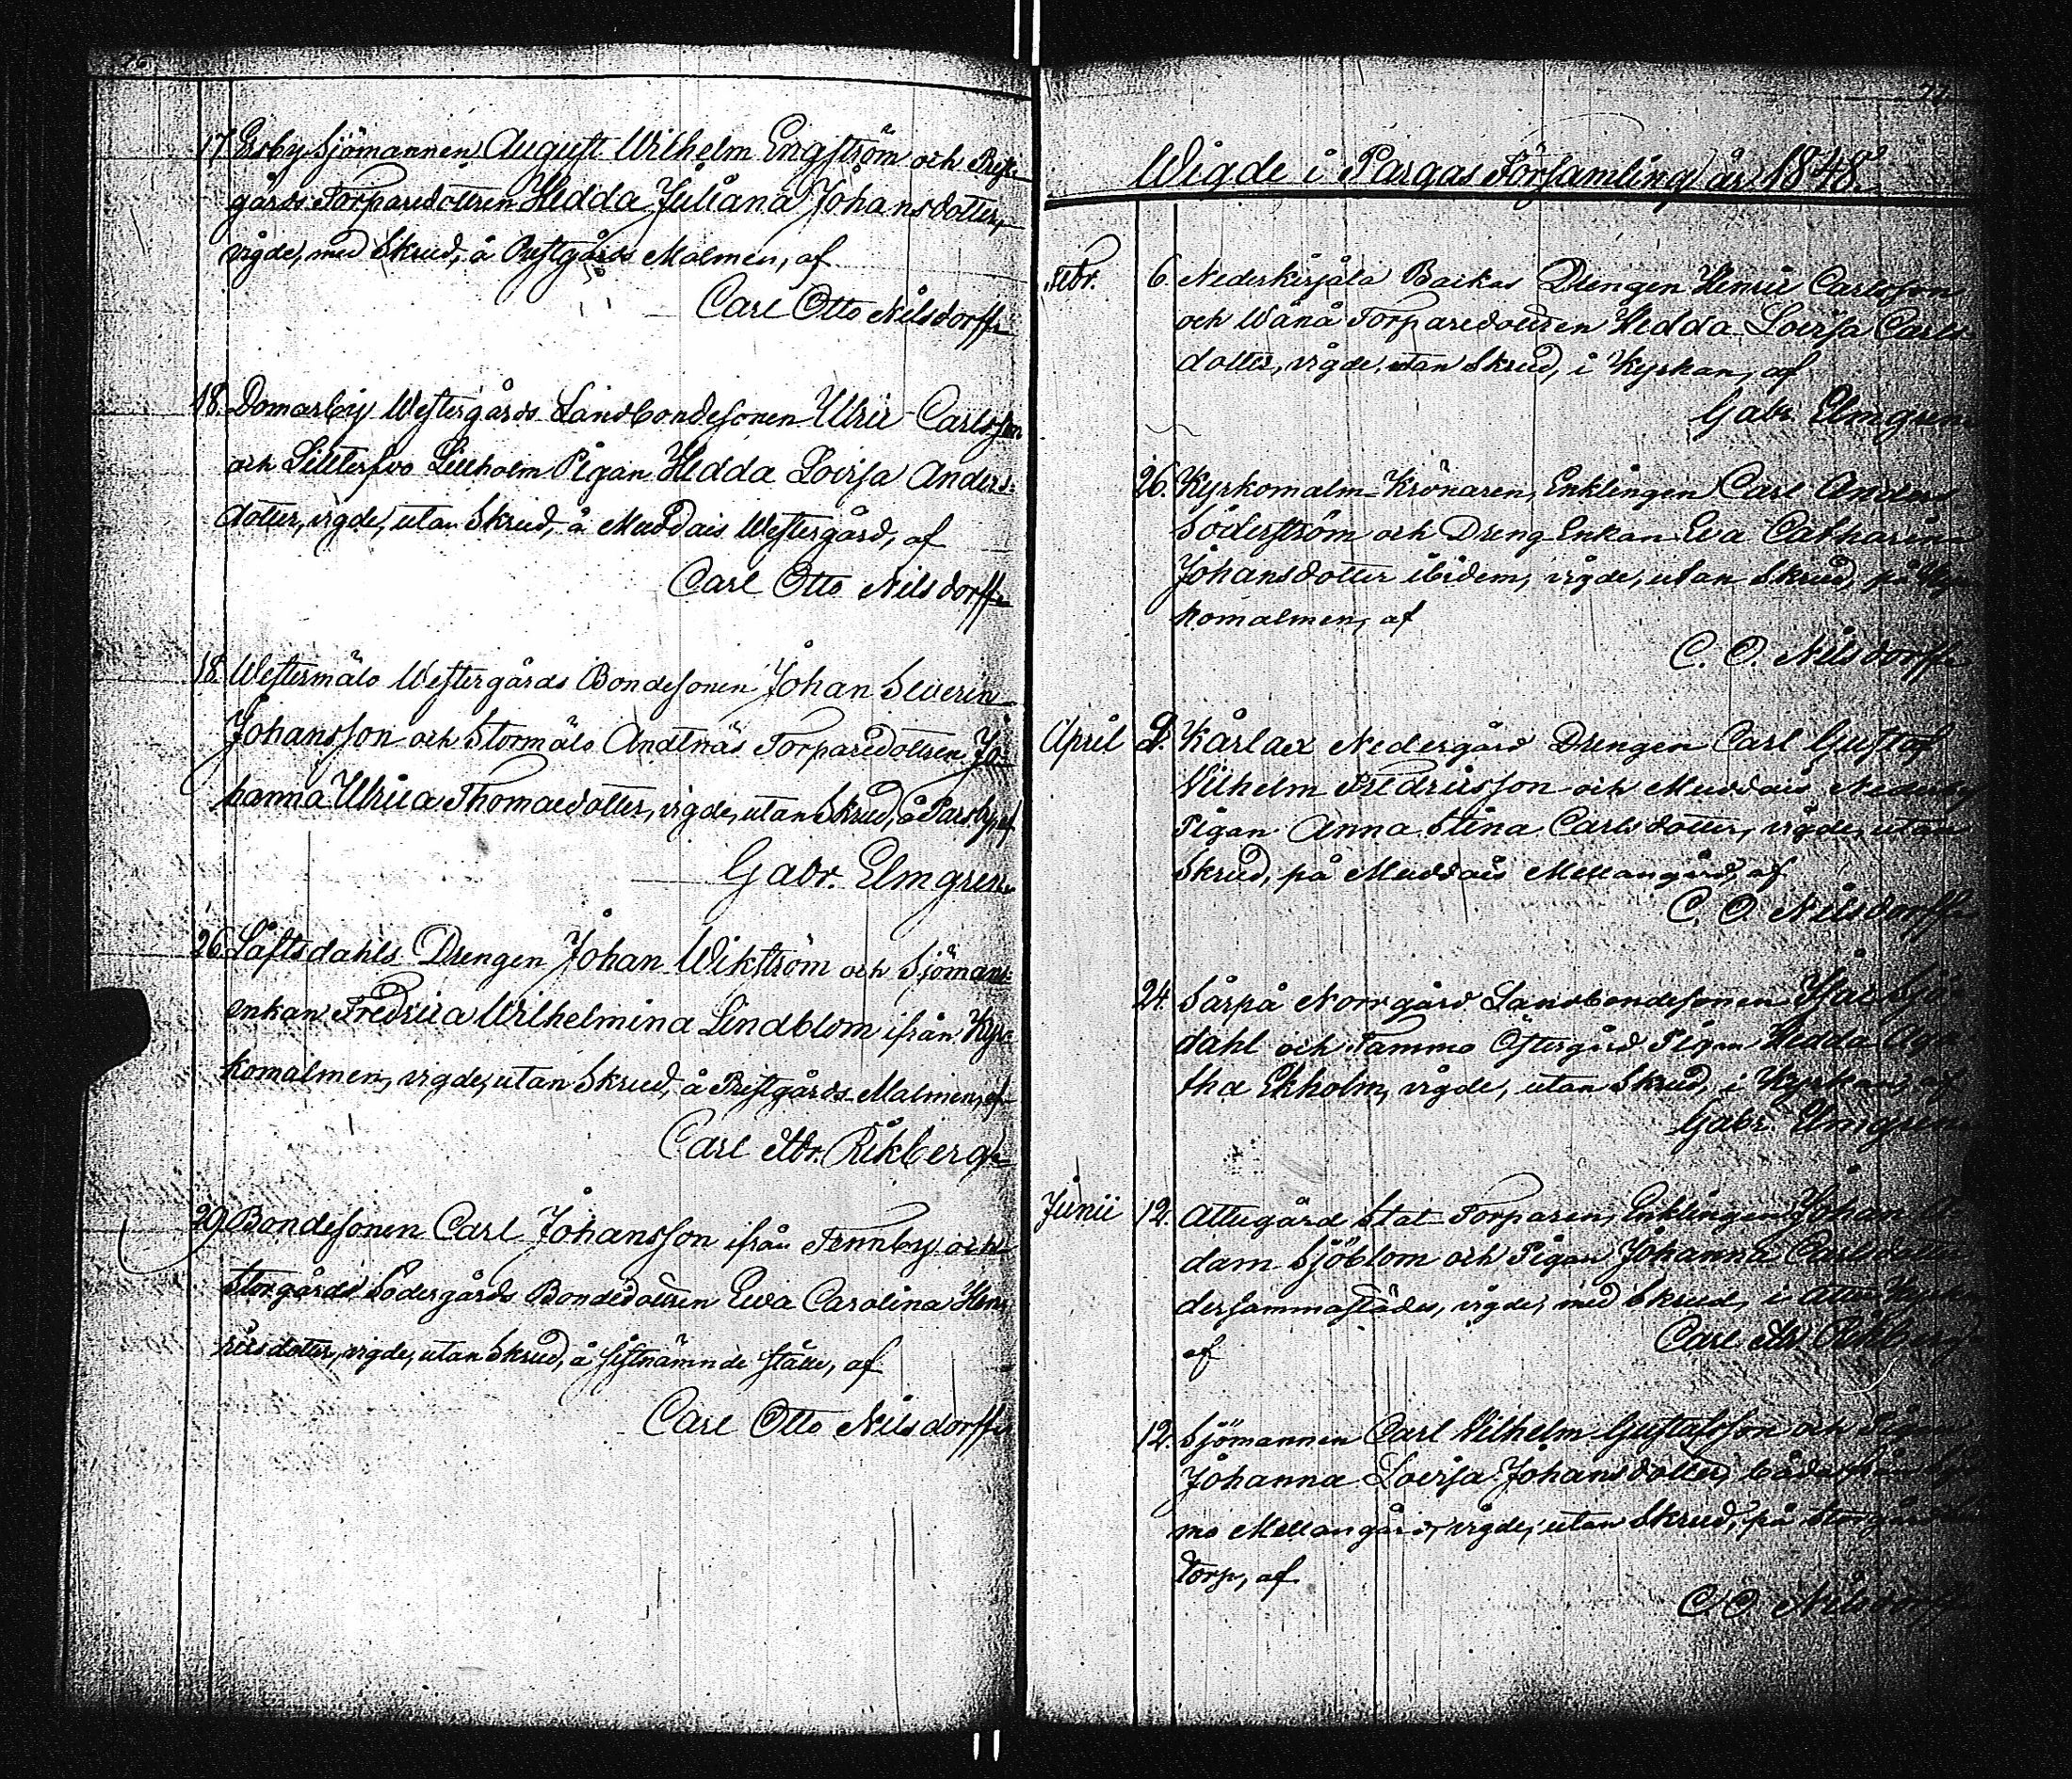 17. Ersby Sjömannen August Wilhelm Engström och
gårds Torparedottren Hedda Juliana Johansdotter,
vigde, med Skrud, å Prestgårds Malmen, af
Carl Otto Nilsdorff
18. Domarby Westergårds Landbondesonen Ulric Carlsson
och Lilltervo Lillholm Pigan Hedda Lovisa Anders-
dotter, vigde, utan Skrud, å Muddais Westergård, af
Carl Otto Nilsdorff
18. Westermälo Westergårds Bondesonen Johan Severin
Johansson och Stormälo Andtnäs Torparedottren Jo-
hanna Ulrica Thomasdotter, vigde, utan Skrud, å Parsby, af
Gabr. Elmgren
26. Löftsdahls Drengen Johan Wikström och Sjömans-
enkan Fredrica Wilhelmina Lindblom ifrån Kyr-
komalmen, vigde, utan Skrud, å Prestgårds Malmen, af
Carl Abr. Rikberg
29. Bondesonen Carl Johansson ifrån Tennby och
Storgårds Södergårds Bondedottren Eva Carolina Hen-
ricsdotter, vigde, utan Skrud, å sistnämnde ställe, af
Carl Otto Nilsdorff
Wigde i Pargas Församling år 1848.
Febr. 6. Nederkirjala Backas Drengen Henric Carlsson
och Wånå Torparedottren Hedda Lovisa Carls-
dotter, vigde, utan Skrud, i Kyrkan, af
Gabr. Elmgren
26. Kyrkomalm Krönaren, Enklingen Carl Anders
Söderström och Dreng Enkan Eva Catharina
Johansdotter ibidem, vigde, utan Skrud, på Kyr-
komalmen, af
C. O. Nilsdorff
April 2. Kårlax Nedergård Drengen Carl Gustaf
Vilhelm Fredricsson och Muddais Nederby
Pigan Anna Stina Carlsdotter, vigde, utan
Skrud, på Muddais Mellangård, af
C. O. Nilsdorff
24. Sårpå Norrgård Landbondesonen Isac Sjö-
dahl och Tammo Östergård Pigan Hedda Aga-
tha Ekholm, vigde, utan Skrud, i Kyrkan, af
Gabr. Elmgren
Junii 12. Attugård Stat-Torparen, Enklingen Johan A-
dam Sjöblom och Pigan Johanna Carlsdotter
dersammastädes, vigde, med Skrud, i Attu
af Carl Abr. Rikberg
12. Sjömannen Carl Vilhelm Gustafsson och Pigan
Johanna Lovisa Johansdotter, båda från
mo Mellangård, vigde, utan Skrud, på Storgårds
Torp, af
C O Nilsdorff